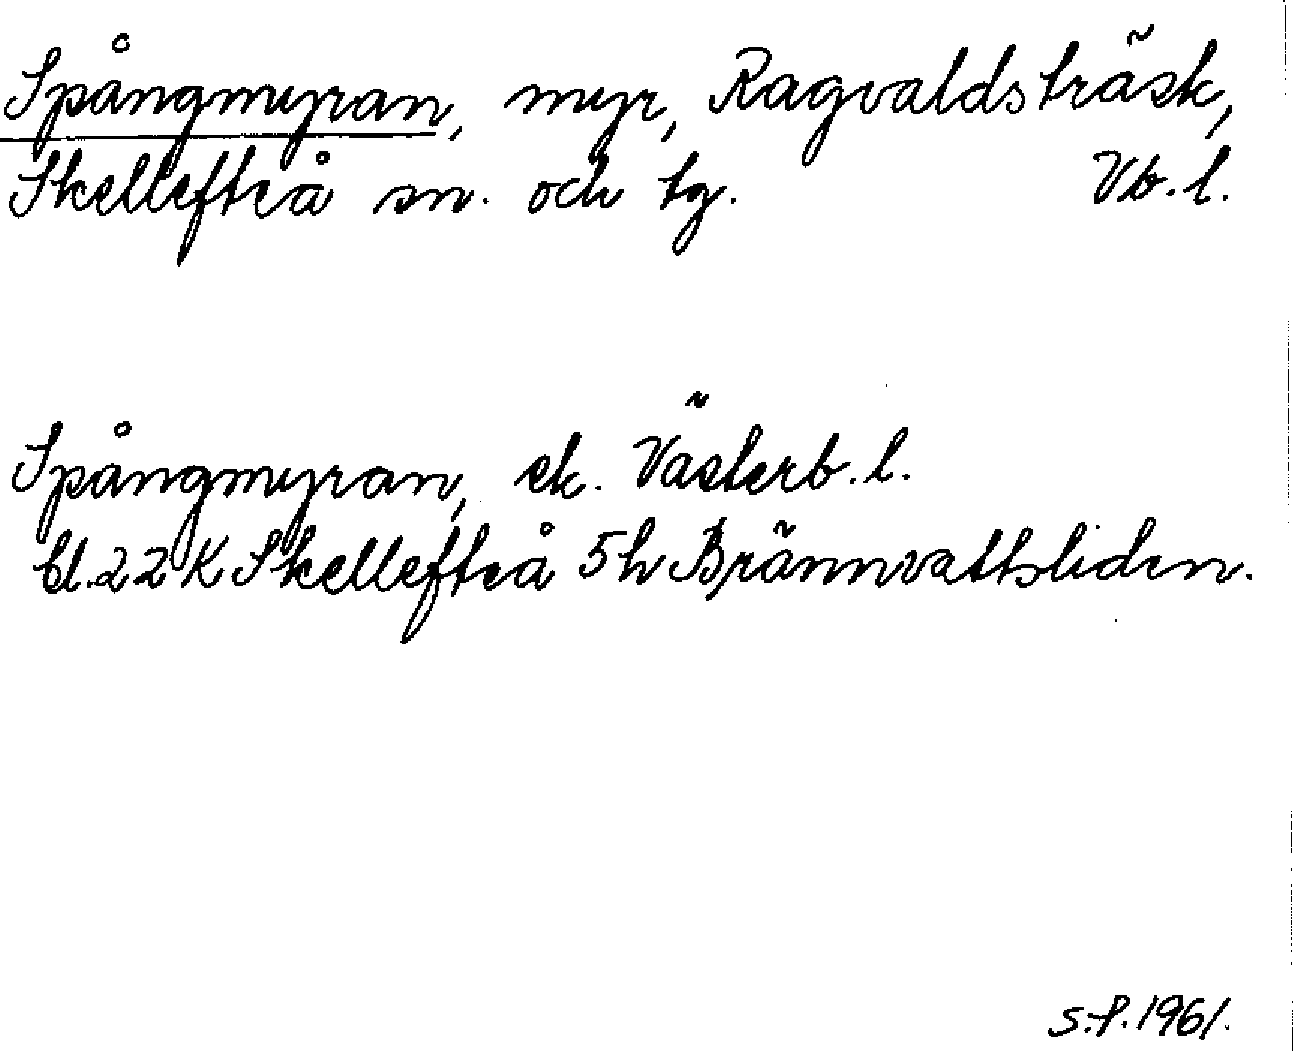 Spångmyran, myr, Ragvaldsträsk,
Skellefteå sn. och tg. Vb.l.
Spångmyran, ek. Västerb.l.
bl.22K Skellefteå 5h Brännvattsliden.
S.P.1961.